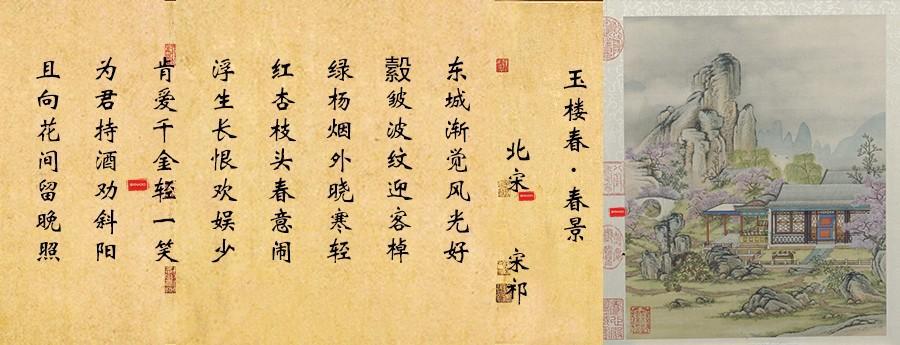 玉楼春·春景
北宋 宋祁
东城渐觉风光好
縠皱波纹迎客棹
绿杨烟外晓寒轻
红杏枝头春意闹
浮生长恨欢娱少
肯爱千金轻一笑
为君持酒劝斜阳
且向花间留晚照